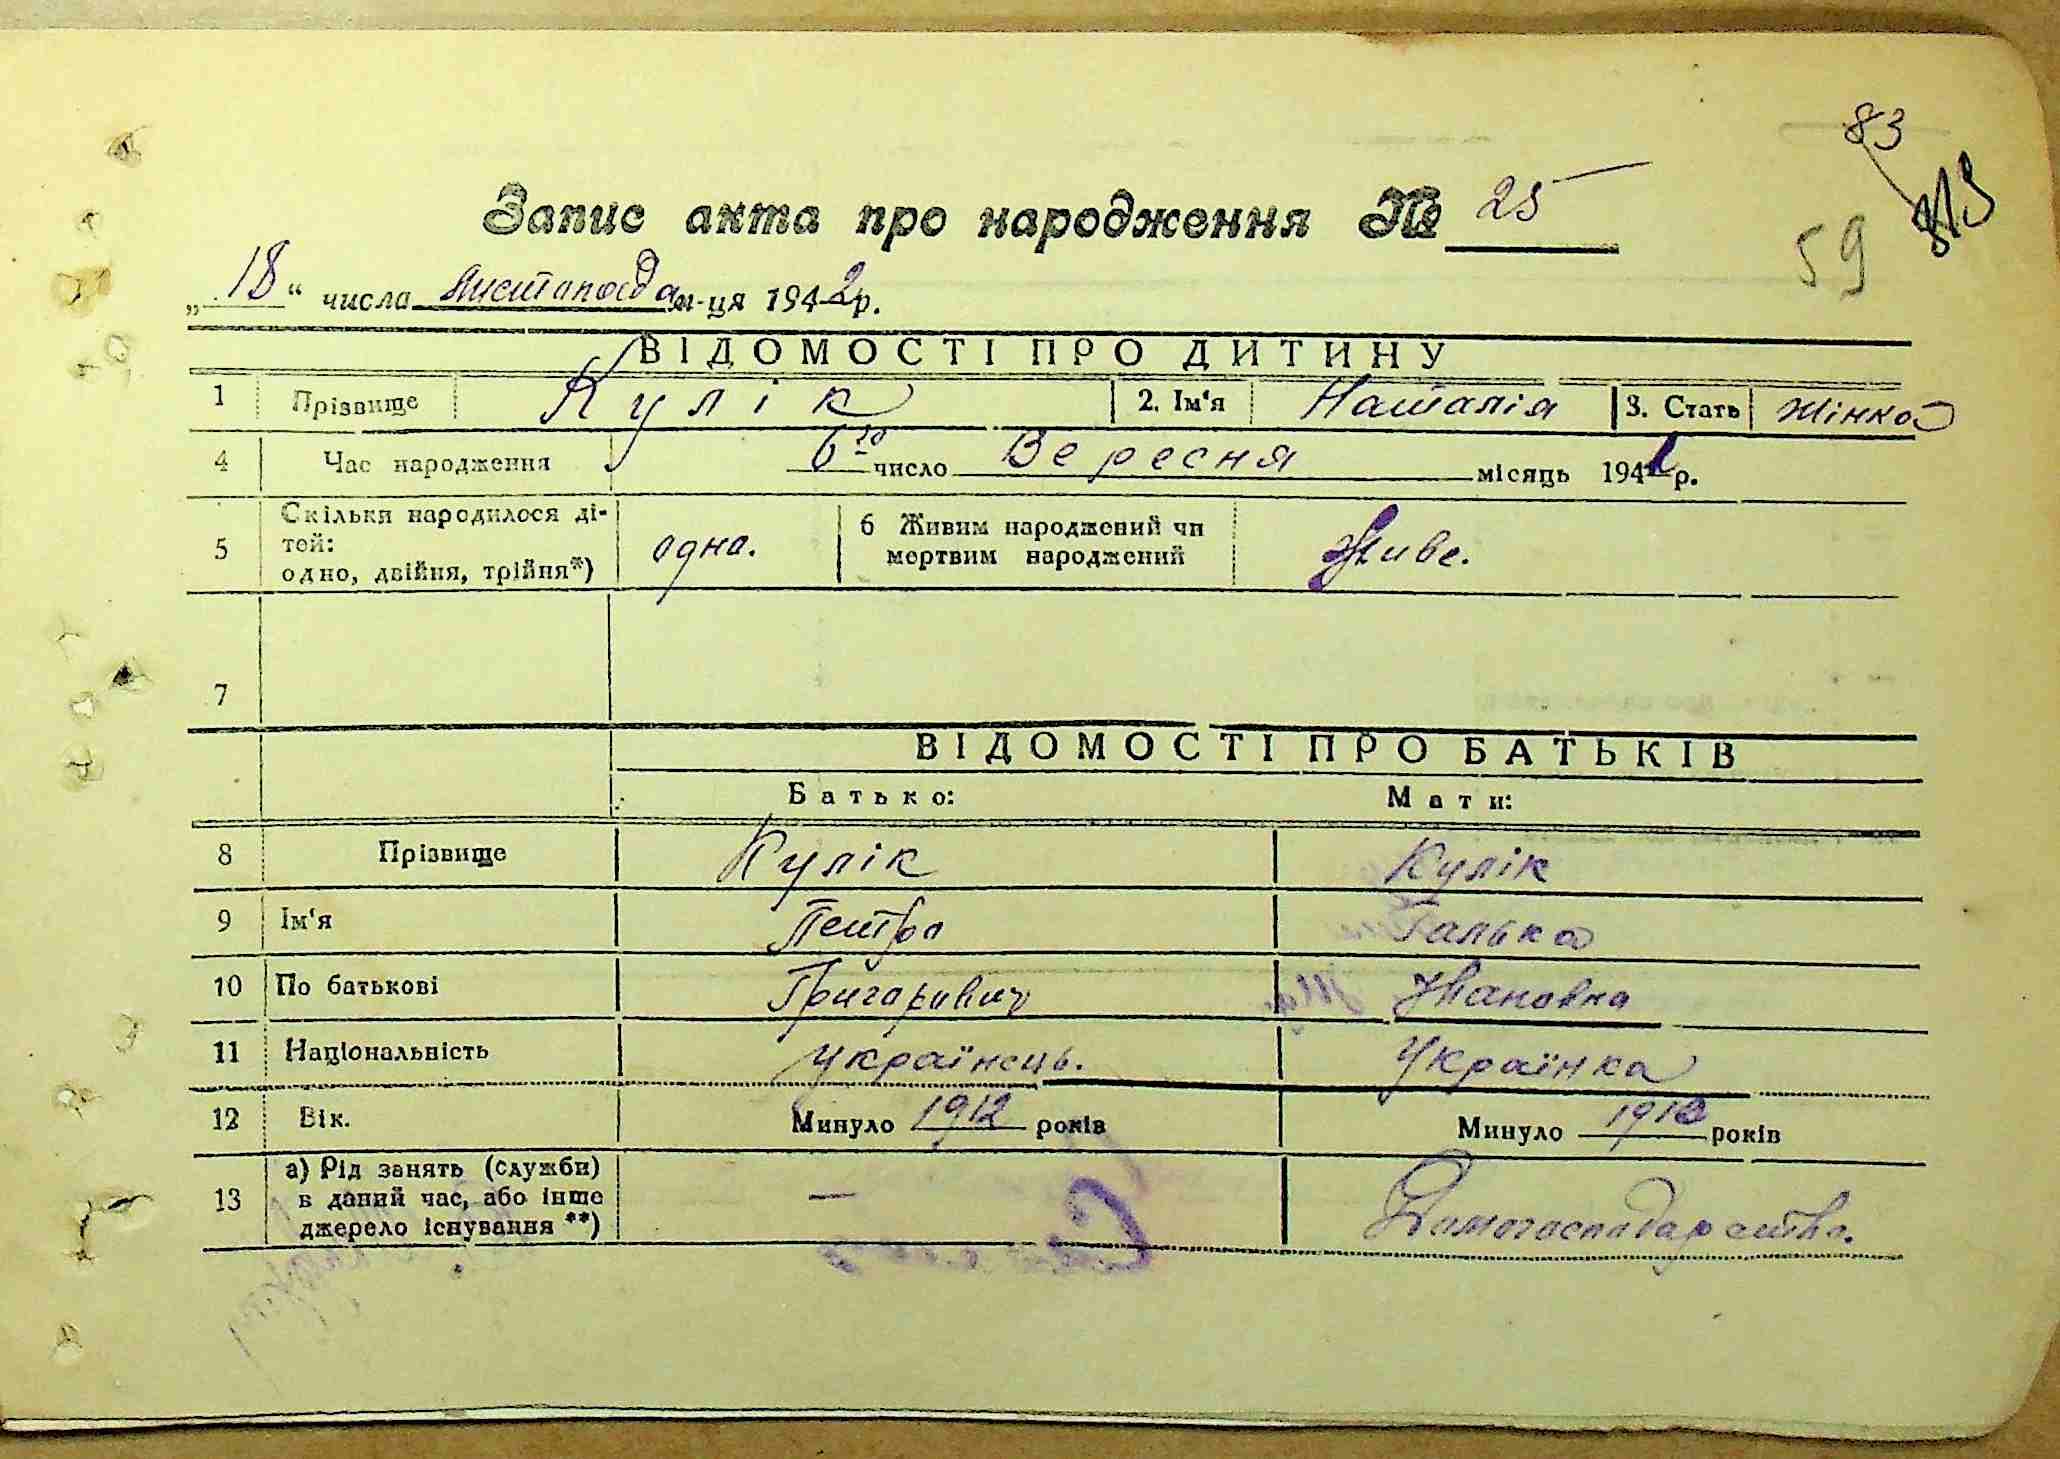 83
813
59
Запис акта про народження № 25
„18“ числа листопада м-ця 1942 р.
ВІДОМОСТІ ПРО ДИТИНУ
1 Прізвище Кулік 2. Ім'я Наталія 3. Стать жінка
4 Час народження 6го число Вересня місяць 1941 р.
5 Скільки народилося ді-
тей:
одно, двійня, трійня*) одна.
6 Живим народжений чи
мертвим народжений Живе.
7
ВІДОМОСТІ ПРО БАТЬКІВ
Батько: Мати:
8 Прізвище Кулік Кулік
9 Ім'я Петро Галька
10 По батькові Григарович Івановна
11 Національність українець. Українка
12 Вік. Минуло 1912 років Минуло років
13 а) Рід занять (служби)
в даний час, або інше
джерело існування **) — Домогосподарство.